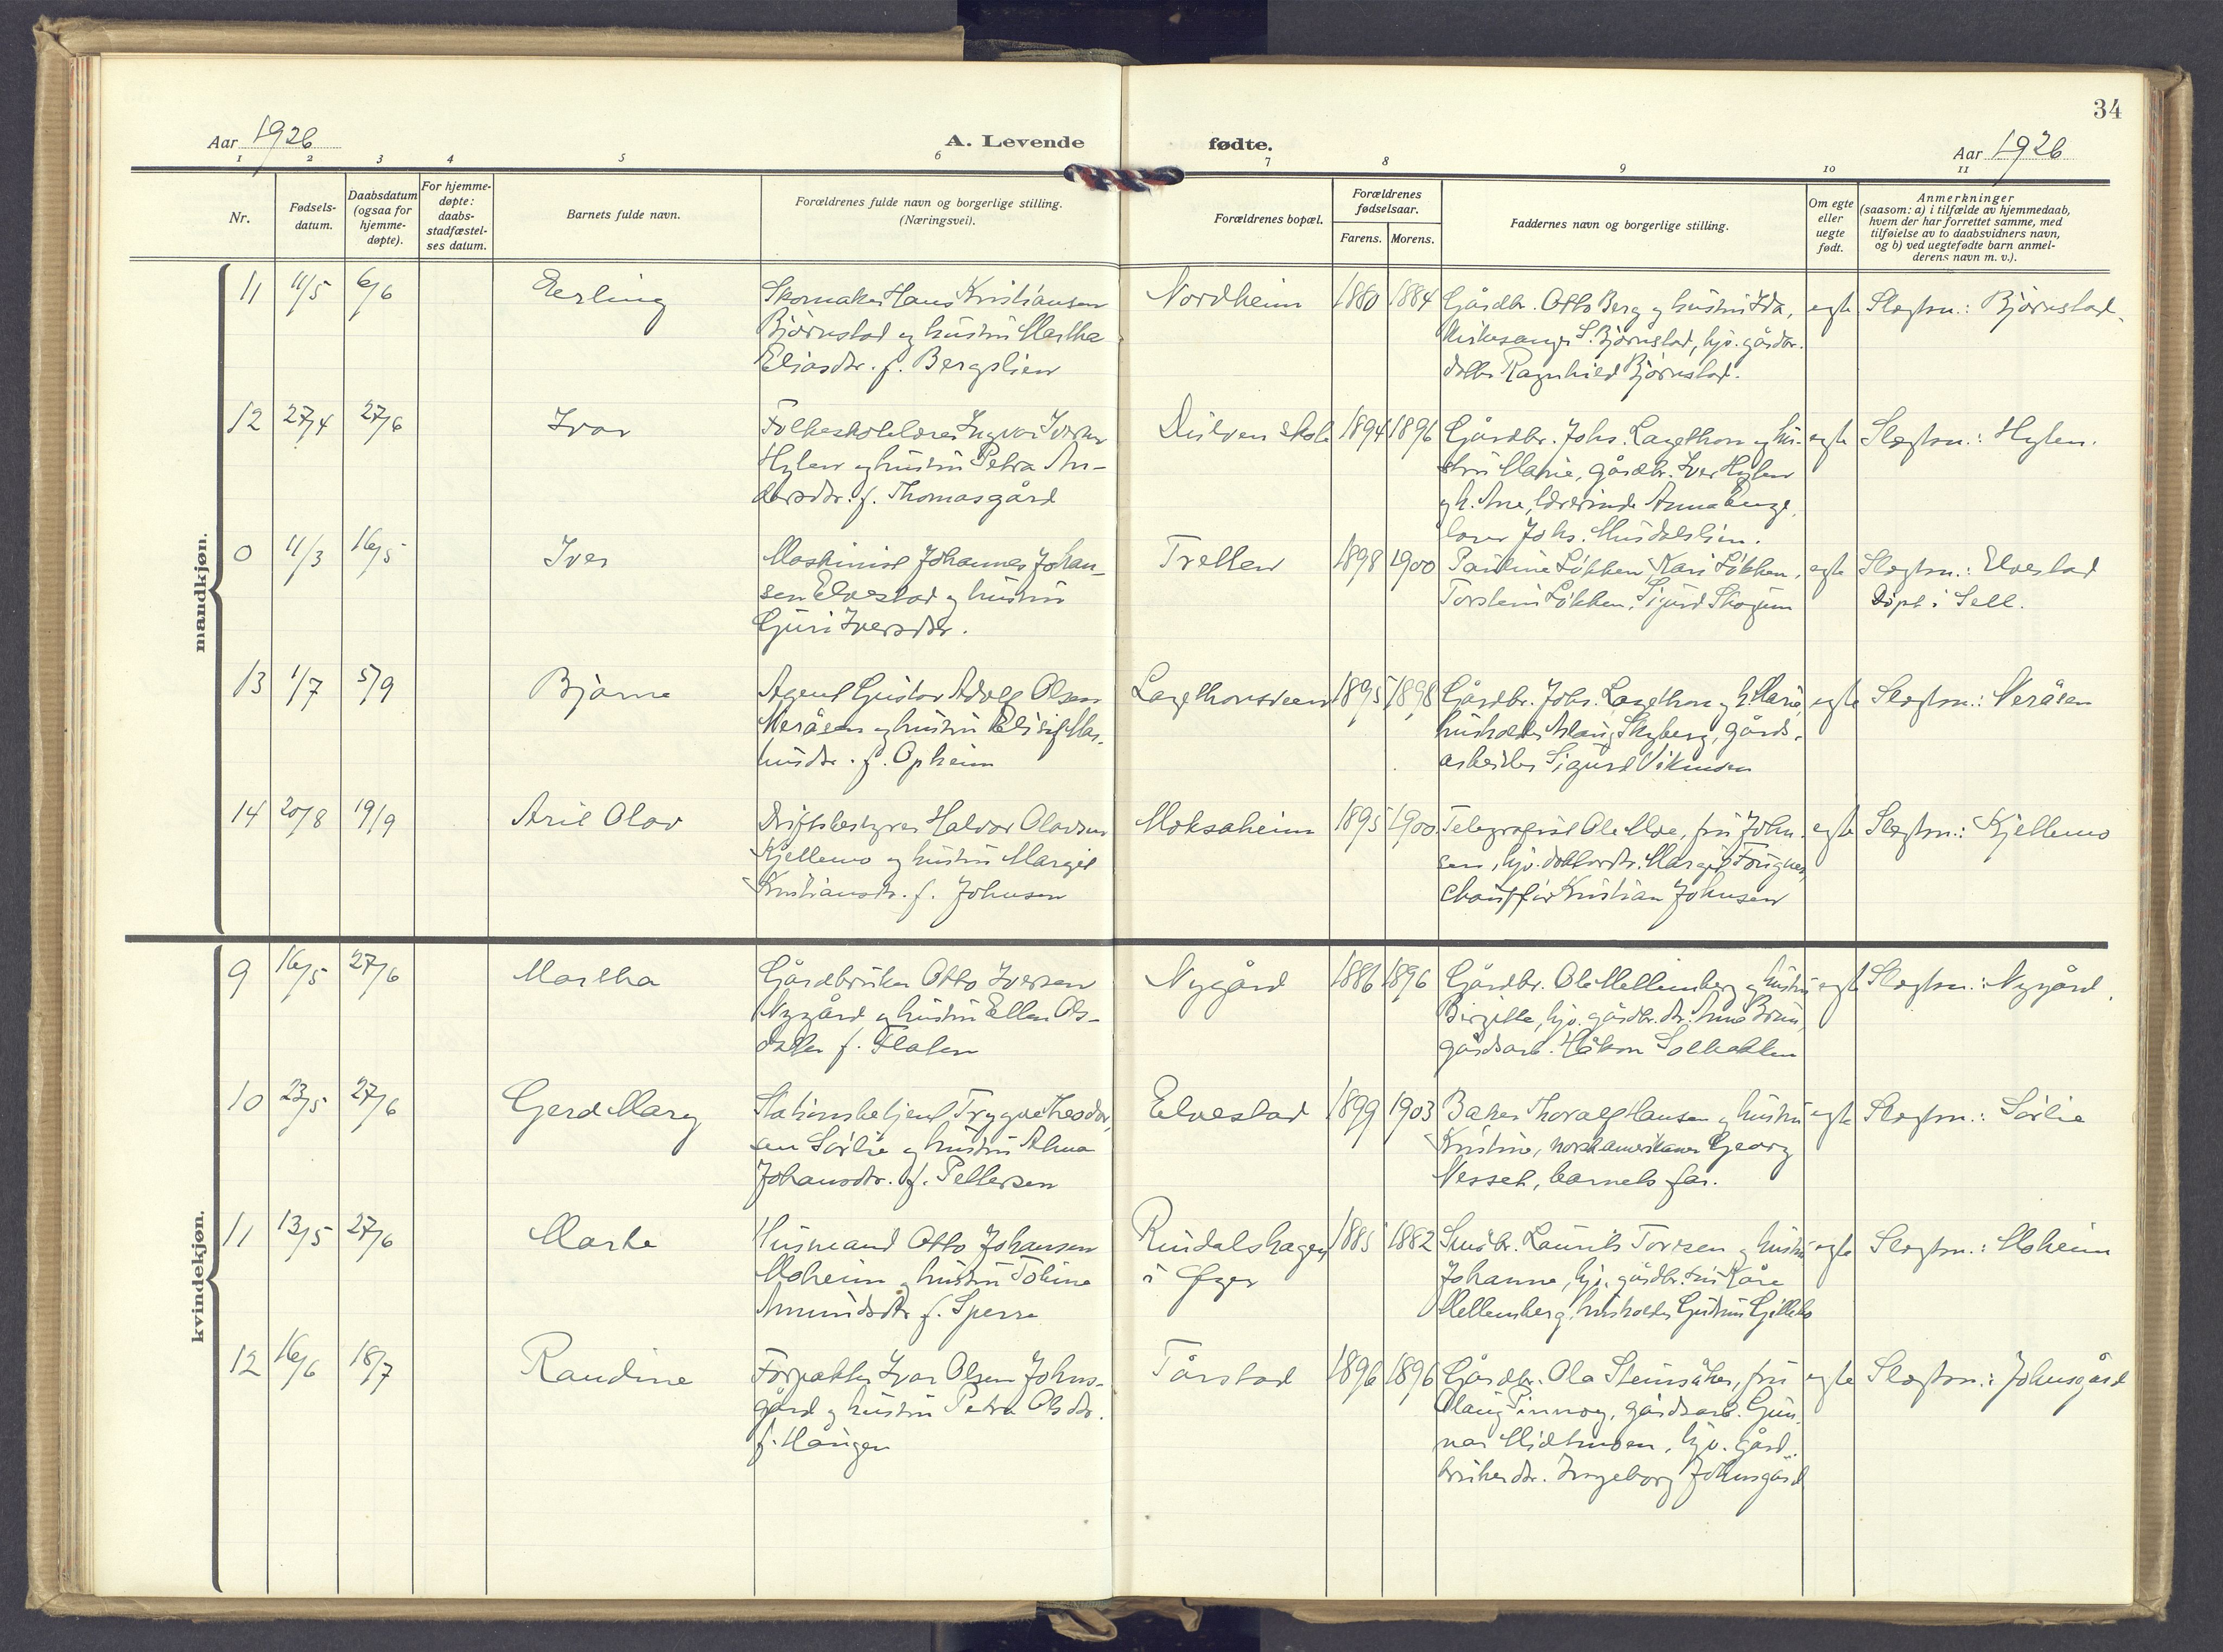 34
Aar 1926
A. Levende
fødte.
Aar 1926
1 2 3 4 5 6 7 8 9 10 11
Nr.
Fødsels-
datum.
Daabsdatum
(ogsaa for
hjemme-
døpte).
For hjemme-
døpte:
daabs-
stadfæstel-
ses datum.
Barnets fulde navn.
Forældrenes fulde navn og borgerlige stilling.
(Næringsvei).
Forældrenes bopæl.
Forældrenes
fødselsaar.
Farens. Morens.
Faddernes navn og borgerlige stilling.
Om egte
eller
uegte
født.
Anmerkninger
(saasom: a) i tilfælde av hjemmedaab,
hvem der har forrettet samme, med
tilføielse av to daabsvidners navn,
og b) ved uegtefødte barn anmel-
derens navn m. v.).
mandkjøn.
11 11/5 6/6 Erling
Skomaker Hans Kristiansen
Bjørnstad og hustru Martha
Eliasdtr. f. Bergslien
Nordheim 1880 1884
Gårdbr. Otto Berg og hustru Ida,
Kirkesanger S. Bjørnstad, hjv. gårdbr.
datter Ragnhild Bjørnstad.
egte Slegtsn.: Bjørnstad.
12 27/4 27/6 Ivar
Folkeskolelærer Ingvar Iversen
Hylen og hustru Petra An-
dersdtr. f. Thomasgård
skole 1894 1896
Gårdbr. Johs. Lagethon og hu-
stru Marie, gårdbr. Iver Hylen
og h. Ane, lærerinde Anna Enge,
lærer Johs. Musdalslien.
egte Slegtsn.: Hylen.
0 11/3 16/5 Iver
Maskinist Johannes Johan-
sen Elvestad og hustru
Guri Iversdtr.
Tretten 1898 1900
Pauline Løkken, Kari Løkken,
Torstein Løkken, Sigurd Skogum
egte Slegtsn.: Elvestad
Døpt i Sell.
13 1/7 5/9 Bjarne
Agent Gustav Adolf Olsen
Neråsen og hustru Elisif Mag-
nusdtr. f. Opheim
Lagethonsveen 1895 1898
Gårdbr. Johs. Lagethon og h. Marie,
husholder Aslaug Skyberg, gårds-
arbeider Sigurd Vikmoen
egte Slegtsn.: Neråsen
14 20/8 19/9 Aril Olav
Driftsbestyrer Halvor Olavsen
Kjellemo og hustru Margit
Kristiansdtr. f. Johnsen
Moksaheim 1895 1900
Telegrafist Ole Moe, fru John-
sen, hjv. doktordtr. Margit Fougner,
chauffør Kristian Johnsen
egte Slegtsn.: Kjellemo
kvindekjøn.
9 16/5 27/6 Martha
Gårdbruker Otto Iversen
Nygård og hustru Ellen Ols-
datter f. Flaten
Nygård 1886 1896
Gårdbr. Ole Mellemberg og hustru
Birgitte, hjv. gårdbr. dtr. Anna Bruun,
gårdsarb. Håkon Solbakken
egte Slegtsn.: Nygård.
10 23/5 27/6 Gerd Mary
Stationsbetjent Trygve Theodor-
sen Sørlie og hustru Alma
Johansdtr. f. Pettersen
Elvestad 1899 1903
Baker Thoralf Hansen og hustru
Kristine, norskamerikaner Georg
Nesset, barnets far.
egte Slegtsn.: Sørlie
11 13/5 27/6 Marte
Husmand Otto Johansen
Moheim og hustru Toline
Amundsdtr. f. Sperre
Rindalshagen
i Øyer
1885 1882
Småbr. Laurits Torzen og hustru
Johanne, hjv. gårdbr. søn Kåre
Mellemberg, husholder Gudrun
egte Slegtsn.: Moheim
12 16/6 18/7 Randine
Forpakter Ivar Olsen Johns-
gård og hustru Petra Olsdtr.
f. Haugen
Tårstad 1896 1896
Gårdbr. Ola Steinsåker, fru
Olaug Pinnoy, gårdsarb. Gun-
nar Midtmoen, hjv. gård-
brukerdtr. Ingeborg Johnsgård
egte Slegtsn.: Johnsgård